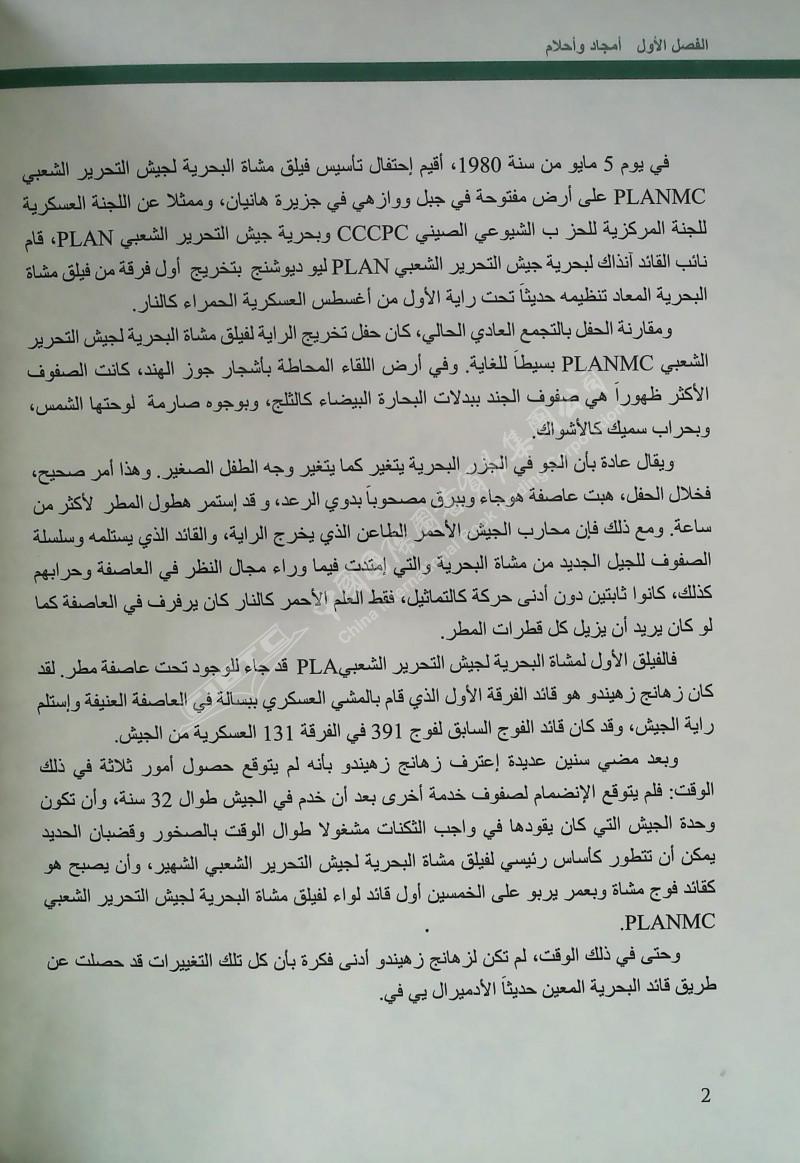 الفصل الأول أمجاد وأحلام
في يوم 5 مايو من سنة 1980، أقيم إحتفال تأسيس فيلق مشاة البحرية لجيش التحرير الشعبي
PLANMC على أرض مفتوحة في جبل ووازهي في جزيرة هانيان، وممثلا عن اللجنة العسكرية
للجنة المركزية للحز ب الشيوعي الصيني CCCPC وبحرية جيش التحرير الشعبي PLAN، قام
نائب القائد آنذاك لبحرية جيش التحرير الشعبي PLAN ليو ديوشنج بتخريج أول فرقة من فيلق مشاة
البحرية المعاد تنظيمه حديثاً تحت راية الأول من أغسطس العسكرية الحمراء كالنار.
ومقارنة الحفل بالتجمع العادي الحالي، كان حفل تخريج الراية لفيلق مشاة البحرية لجيش التحرير
الشعبي PLANMC بسيطاً للغاية. وفي أرض اللقاء المحاطة بأشجار جوز الهند، كانت الصفوف
الأكثر ظهوراً هي صفوف الجند ببدلات البحارة البيضاء كالثلج، وبوجوه صارمة لوحتها الشمس،
وبحراب سميك كالأشواك.
ويقال عادة بأن الجو في الجزر البحرية يتغير كما يتغير وجه الطفل الصغير. وهذا أمر صحيح،
فخلال الحفل، هبت عاصفة هوجاء وببرق مصحوباً بدوي الرعد، و قد إستمر هطول المطر لأكثر من
ساعة. ومع ذلك فإن محارب الجيش الأحمر الطاعن الذي يخرج الراية، والقائد الذي يستلمه وسلسلة
الصفوف للجيل الجديد من مشاة البحرية والتي إمتدت فيما وراء مجال النظر في العاصفة وحرابهم
كذلك، كانوا ثابتين دون أدنى حركة كالتماثيل، فقط العلم الأحمر كالنار كان يرفرف في العاصفة كما
لو كان يريد أن يزيل كل قطرات المطر.
فالفيلق الأول لمشاة البحرية لجيش التحرير الشعبيPLA قد جاء للوجود تحت عاصفة مطر. لقد
كان زهانج زهيندو هو قائد الفرقة الأول الذي قام بالمشي العسكري ببسالة في العاصفة العنيفة وإستلم
راية الجيش، وقد كان قائد الفوج السابق لفوج 391 في الفرقة 131 العسكرية من الجيش.
وبعد مضي سنين عديدة إعترف زهانج زهيندو بأنه لم يتوقع حصول أمور ثلاثة في ذلك
الوقت: فلم يتوقع الإنضمام لصفوف خدمة أخرى بعد أن خدم في الجيش طوال 32 سنة، وأن تكون
وحدة الجيش التي كان يقودها في واجب الثكنات مشغولا طوال الوقت بالصخور وقضبان الحديد
يمكن أن تتطور كأساس رئيسي لفيلق مشاة البحرية لجيش التحرير الشعبي الشهير، وأن يصبح هو
كقائد فوج مشاة وبعمر يربو على الخمسين أول قائد لواء لفيلق مشاة البحرية لجيش التحرير الشعبي
PLANMC.
وحتى في ذلك الوقت، لم تكن لزهانج زهيندو أدنى فكرة بأن كل تلك التغييرات قد حصلت عن
طريق قائد البحرية المعين حديثاً الأدميرال يي في.
2